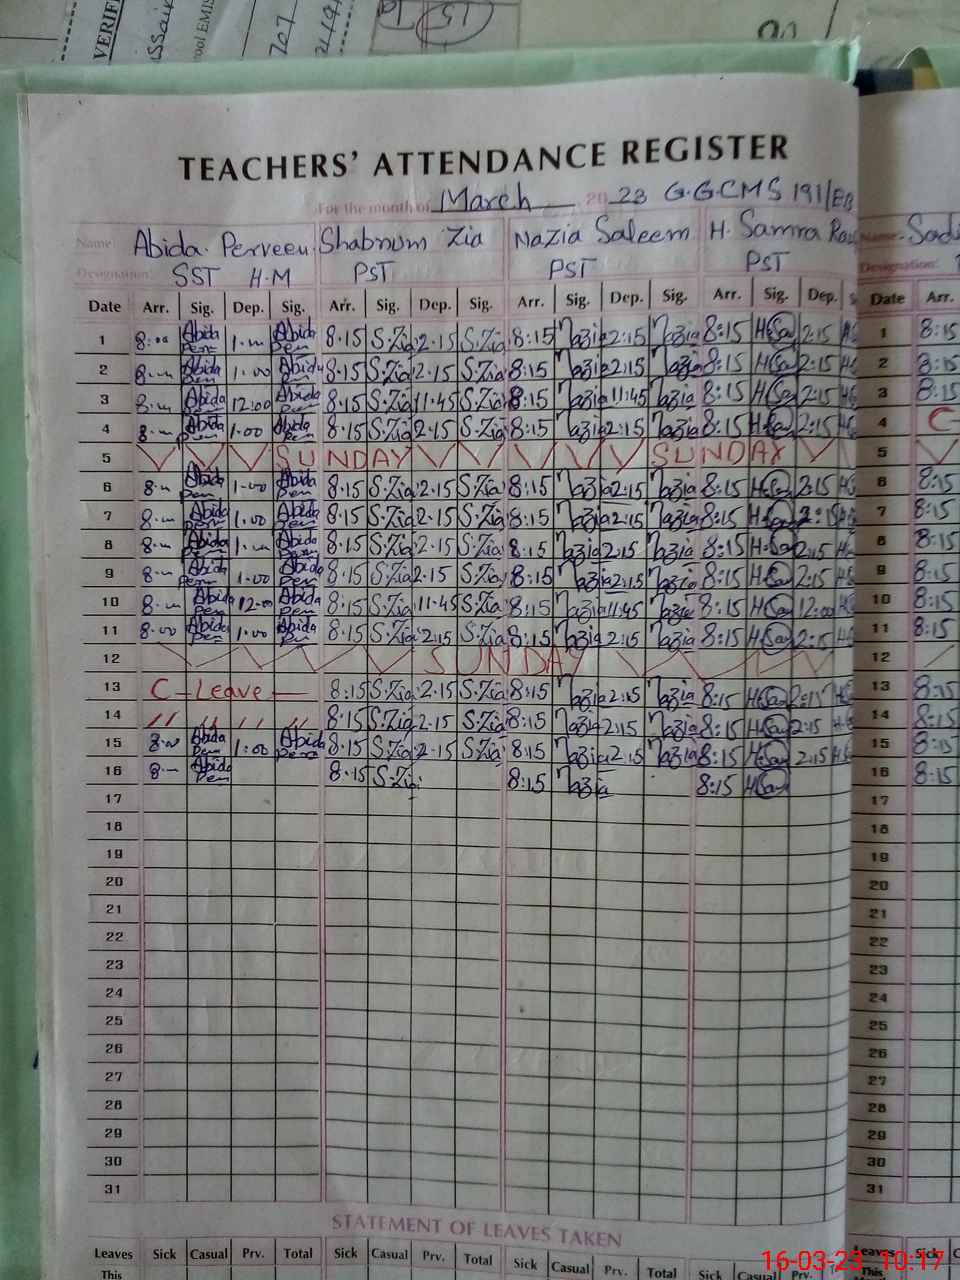 VERIFI
ssain
ool EMIS
707
ST
TEACHERS' ATTENDANCE REGISTER
For the month of March 20 23 G.G.CMS 191/EB
Name: Abida Perveen Shabnum Zia Nazia Saleem H. Samra Name:
Designation: SST H.M PST PST PST Designation:
Date Arr. Sig. Dep. Sig. Arr. Sig. Dep. Sig. Arr. Sig. Dep. Sig. Arr. Sig. Dep. S Date Arr.
1 8:00 Abida 1.00 Abida 8.15 S.Zia 2.15 S.Zia 8:15 Nazia 2:15 Nazia 8:15 2:15 1 8:15
2 8:00 Abida 1.00 Abida 8.15 S.Zia 2.15 S.Zia 8:15 Nazia 2:15 Nazia 8:15 2:15 2 8:15
3 8:00 Abida 12:00 Abida 8.15 S.Zia 11.45 S.Zia 8:15 Nazia 11:45 Nazia 8:15 2:15 3 8:15
4 8:00 Abida 1.00 Abida 8.15 S.Zia 2.15 S.Zia 8:15 Nazia 2:15 Nazia 8:15 2:15 4 C
5 SUNDAY SUNDAY 5
6 8:00 Abida 1.00 Abida 8.15 S.Zia 2.15 S.Zia 8:15 Nazia 2:15 Nazia 8:15 2:15 6 8:15
7 8:00 Abida 1.00 Abida 8.15 S.Zia 2.15 S.Zia 8:15 Nazia 2:15 Nazia 8:15 2:15 7 8:15
8 8:00 Abida 1.00 Abida 8.15 S.Zia 2.15 S.Zia 8:15 Nazia 2:15 Nazia 8:15 2:15 8 8:15
9 8:00 Abida 1.00 Abida 8.15 S.Zia 2.15 S.Zia 8:15 Nazia 2:15 Nazia 8:15 2:15 9 8:15
10 8:00 Abida 12:00 Abida 8.15 S.Zia 11.45 S.Zia 8:15 Nazia 11:45 Nazia 8:15 12:00 10 8:15
11 8:00 Abida 1.00 Abida 8.15 S.Zia 2.15 S.Zia 8:15 Nazia 2:15 Nazia 8:15 2:15 11 8:15
12 SUNDAY 12
13 C - Leave - 8:15 S.Zia 2.15 S.Zia 8:15 Nazia 2:15 Nazia 8:15 2:15 13 8:15
14 " " " " 8:15 S.Zia 2.15 S.Zia 8:15 Nazia 2:15 Nazia 8:15 2:15 14 8:15
15 8:00 Abida 1:00 Abida 8.15 S.Zia 2.15 S.Zia 8:15 Nazia 2:15 Nazia 8:15 2:15 15 8:15
16 8:00 Abida 8.15 S.Zia 8:15 Nazia 8:15 16 8:15
17 17
18 18
19 19
20 20
21 21
22 22
23 23
24 24
25 25
26 26
27 27
28 28
29 29
30 30
31 31
STATEMENT OF LEAVES TAKEN
Leaves Sick Casual Prv. Total Sick Casual Prv. Total Sick Casual Prv. Total Sick Casual Prv. Leaves Sick
This This
16-03-23 10:17